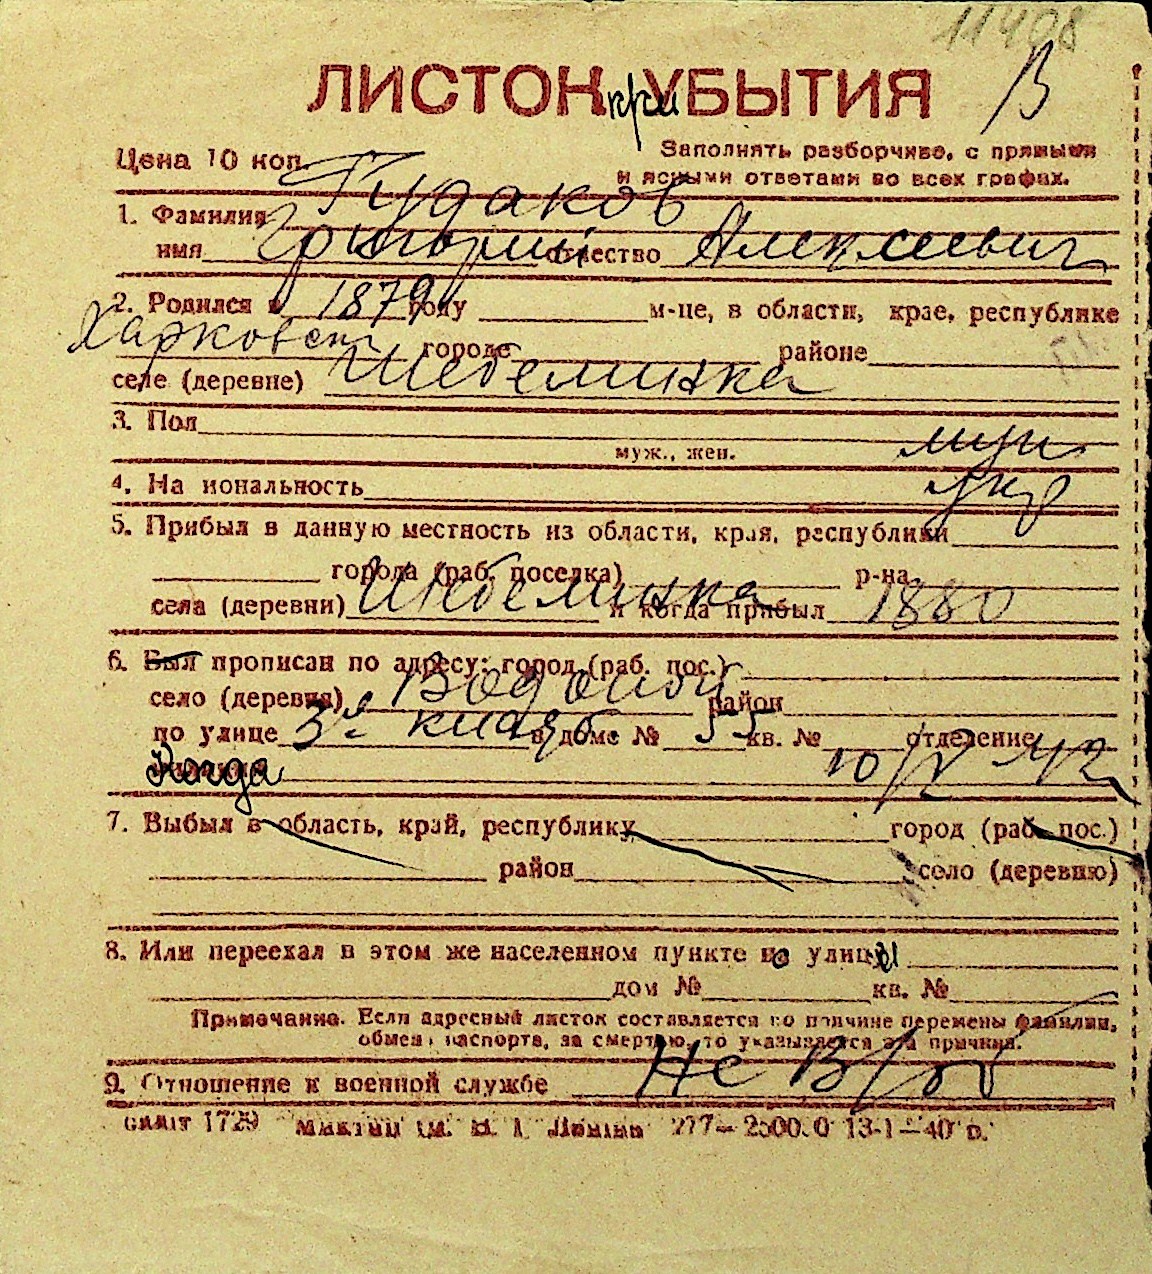 11498
ЛИСТОК при УБЫТИЯ В
Цена 10 коп.
Заполнять разборчиво, с прямыми
и ясными ответами во всех графах.
1. Фамилия Гудаков
имя Григорий отчество Алексеевич
2. Родился в 1879 году м-це, в области, крае, республике
Харковск городе районе
селе (деревне) Шебелинка
3. Пол муж
муж., жен.
4. На иональность укр
5. Прибыл в данную местность из области, края, республики
города (раб. поселка) р-на
села (деревни) Шебелинка и когда прибыл 1880
6. Был прописан по адресу: город (раб. пос.)
село (деревня) район
по улице 3я в доме № 55 кв. № отделение
Когда 10/X 42
7. Выбыл в область, край, республику город (раб. пос.)
район село (деревню)
8. Или переехал в этом же населенном пункте по улицы
дом № кв. №
Примечание. Если адресный листок составляется по причине перемены фамилии,
обмена паспорта, за смертью, то указывается эта причина.
9. Отношение к военной службе Не в/об
1729 им. Ленина 277— 13-1—40 г.